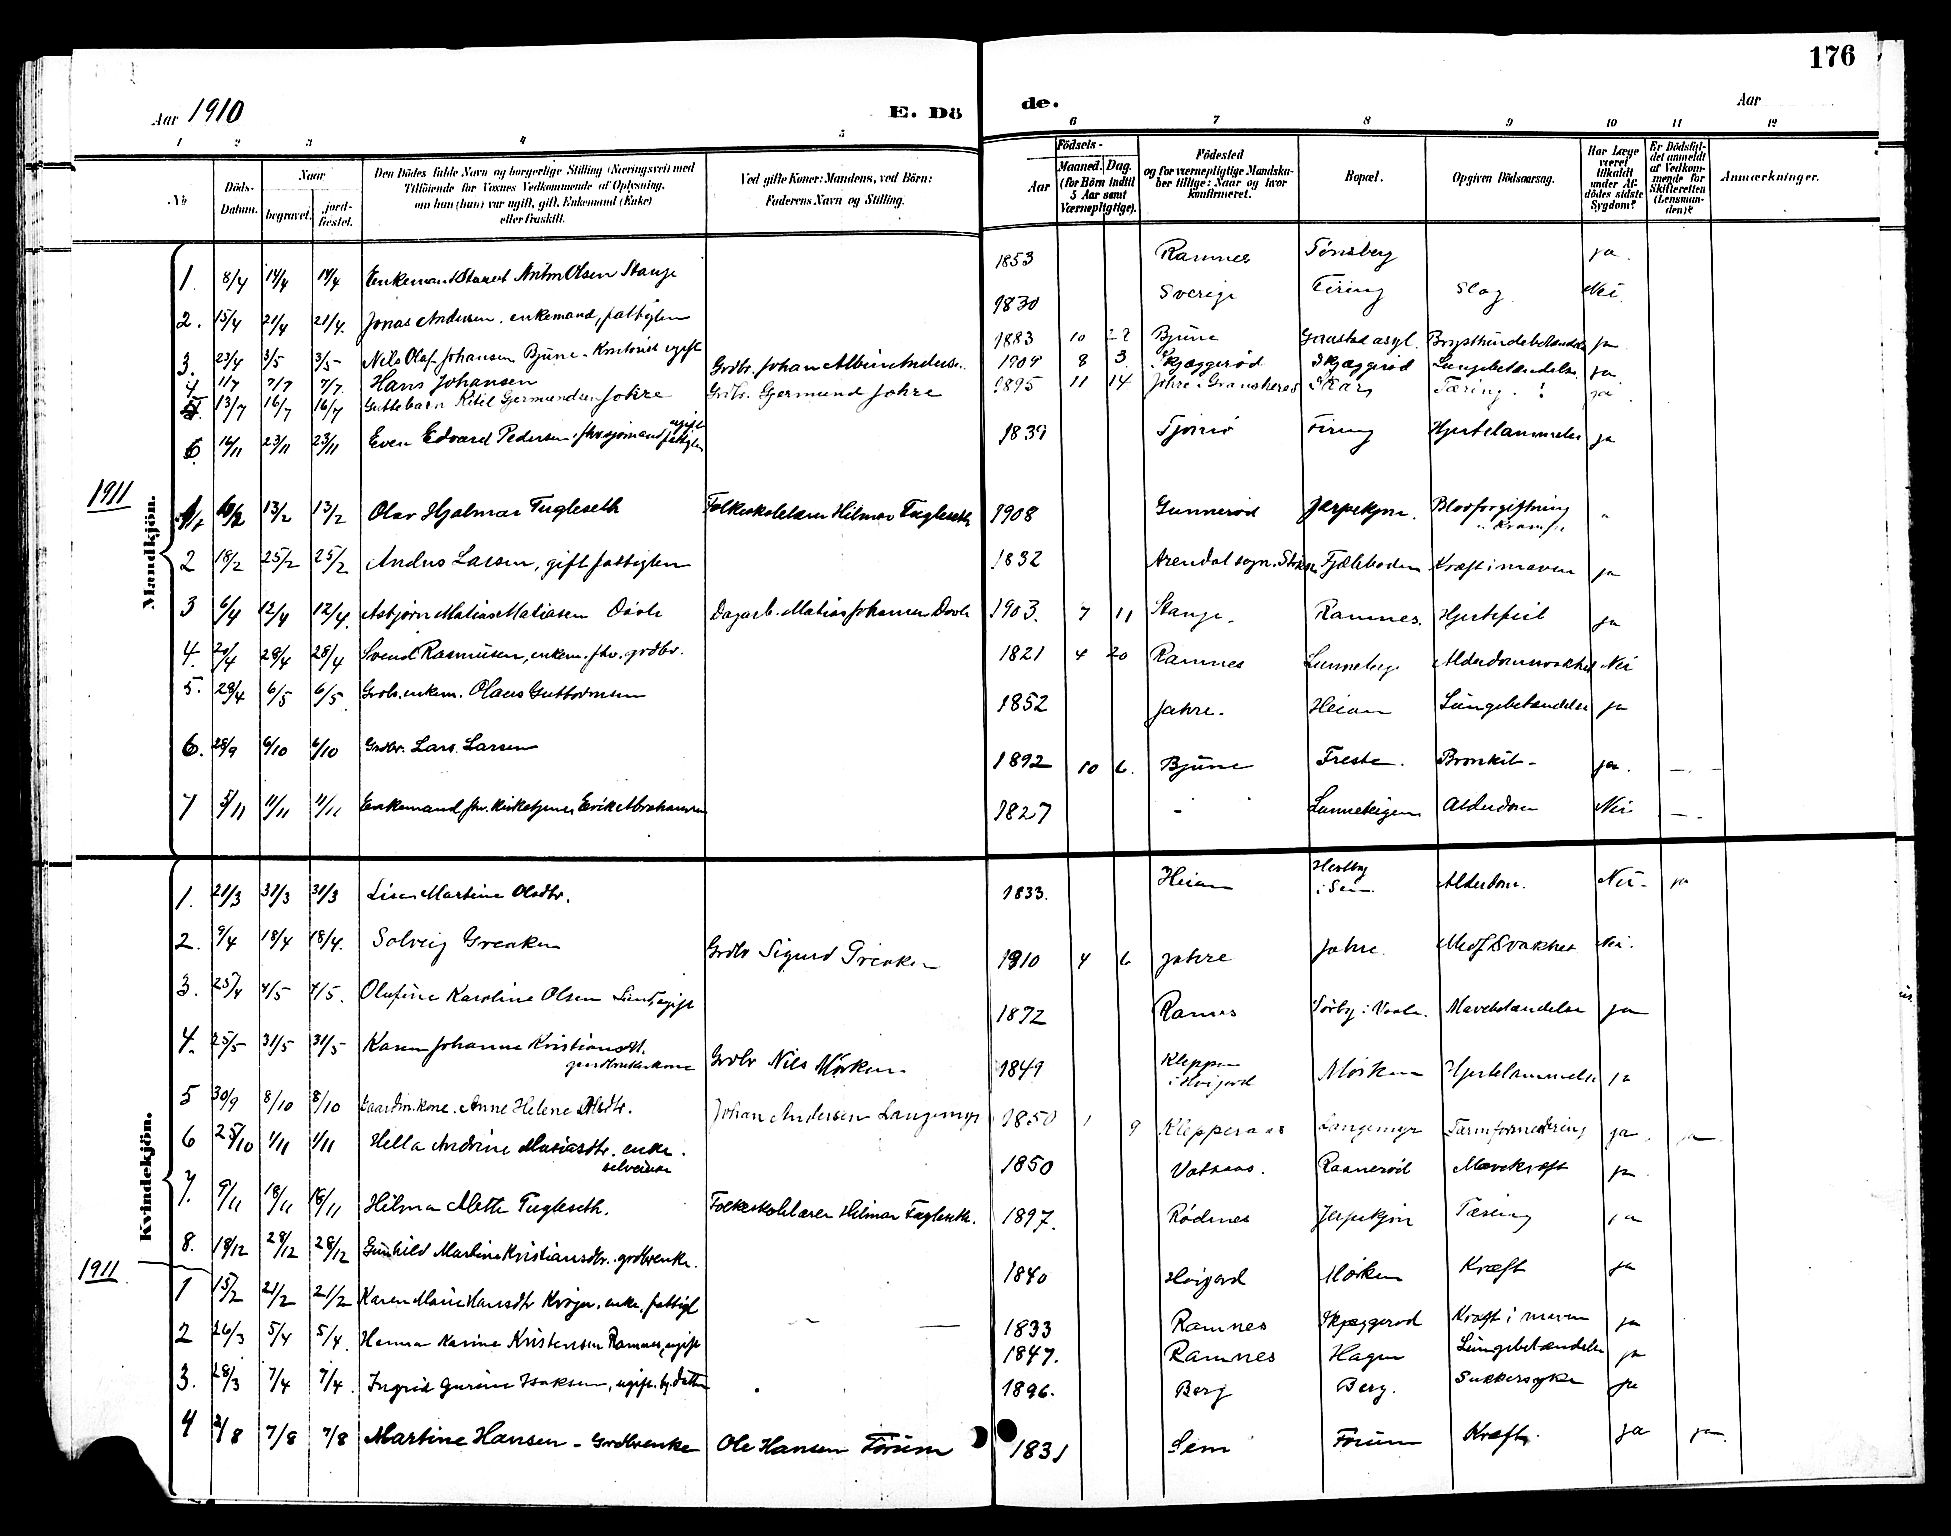 176
Aar 1910
E. Dö
de.
Aar
1 2 3 4 5 6 7 8 9 10 11 12
No
Döds-Datum.
Naar
begravet. jord-fæstet.
Den Dödes fulde Navn og borgerlige Stilling (Næringsvei) med
Tilföiende for Voxnes Vedkommende af Oplysning,
om han (hun) var ugift, gift, Enkemand (Enke)
eller fraskilt.
Ved gifte Koner: Mandens, ved Börn:
Faderens Navn og Stilling.
Födsels-
Aar Maaned. Dag.
(for Börn indtil
5 Aar samt
Værnepligtige).
Födested
og for værnepligtige Mandska-
ber tillige: Naar og hvor
konfirmeret.
Bopæl.
Opgiven Dödsaarsag.
Har Læge
været
tilkaldt
under Af-
dödes sidste
Sygdom?
Er Dödsfal-
det anmeldt
af Vedkom-
mende for
Skifteretten
(Lensman-
den)?
Anmærkninger.
Mandkjön.
1. 8/4 14/4 14/4 Enkemand Anton Olsen Stange 1853 Ramnes Tønsberg ja.
2. 15/4 21/4 21/4. Jonas Andersen. enkemand, fattiglem 1830 Sverige Firing Slag Nei.
3. 23/4 3/5 3/5 Nils Olaf Johansen Bjune - Kontorist ugift 1883 10 22 Bjune Gaustad asyl. ja
4 11/7 7/7. Hans Johansen Grdbr. Johan Albin Anders. 1909 8 3 Skjæggerød Skjæggerød Lungebetændelse. ja.
5. 13/7 16/7 16/7 Guttebarn Ketil Germundsen Jahre Grdbr. Germund Jahre 1895 11 14 Tæring. ja.
6. 16/11 23/11 23/11 Even Edvard Pedersen, fhv. sjømand, ugift fattiglem 1839 Tjømø Firing Hjertelammelse ja
1911
1. 6/2 13/2 13/2 Olav Hjalmar Fugleseth Folkeskolelærer Hilmar Fugleseth 1908 Gunnerød Jerpekjøn. Blodforgiftning
2 18/2 25/2 25/2 Anders Larsen, gift fattiglem 1832 Arendal sogn. Fjæleboden Kræft i maven ja
3 6/4 12/4 12/4. Asbjørn Matias Matiasen Dovle Dagarb. Matias Johansen Dovle 1903. 7 11 Stange. Ramnes. Hjertefeil ja
4. 20/4 28/4 28/4 Svend Rasmussen, enkem. fhv. grdbr. 1821 4 20 Ramnes Lunneberge Alderdomssvakhet Nei
5. 28/4 6/5 6/5. Grdb. enkem. Olaus Guttormsen 1852 Jahre. Heian Lungebetændelse ja
6. 28/9 6/10 6/10 Grdbr. Lars Larsen 1892 10 6. Bjune Freste. Bronkit - ja. - . -
7 5/11 11/11 11/11 Enkemand fhv. kirketjener Erik Abrahamsen 1827 - Alderdom Nei - . -
Kvindekjön.
1. 21/3 31/3 31/3 Lisa Martine Olsdtr. 1833. Heian Alderdom. Nei - ja
2. 9/4 18/4 18/4. Solveig Greaker Grdbr Sigurd Greaker 1910 4 6 Jahre Jahre. Medf. Svakhet Nei.
3. 25/4 4/5 4/5. Olufine Karoline Olsen ugift 1872 Ramnes Sørby i Vaale. Mavebetændelse ja
4. 25/5 31/5 31/5 Karen Johanne Kristiansdt. gaardbrukerkone Grdbr Nils Mörken. 1849 Kleppen i Høijord Mörken Hjertelammelse ja
5 30/9 8/10 8/10 Gaardm. kone. Anne Helene Olsdtr. Johan Andersen Langemyr 1850 1 9 Klepperaas Langemyr ja. ja
6 25/10 1/11 1/11 Hella Andrine Mathiasdtr. enke. selveier 1850 Vataas. Raanerød Mavekræft ja
7. 9/11 18/11 18/11 Hilma Mette Fugleseth. Folkeskolelærer Hilmar Fugleseth. 1897. Rødenes Jerpekjøn Tæring ja
8. 18/12 28/12 28/12 Gunhild Martine Kristiansdtr. grdbrenke. 1840 Høijord Mörken Kræft ja
1911
1 15/2 21/2 21/2 Karen Marie Hansdtr Krøger. enke. fattigl 1833 Ramnes Skjæggerød Kræft i maven ja
2 26/3 5/4 5/4. Hanna Karine Kristensen Ramnes, ugift 1847. Ramnes Hagen Lungebetændelse ja
3. 28/3 7/4 7/4. Ingrid Gurine Isaksen, ugift. bg. datter 1896. Berg Berg. Sukkersyke ja
4 2/8 7/8 7/8 Martine Hansen - Grdbrenke Ole Hansen Førum 1831 Sem Førum Kræft. ja ja.